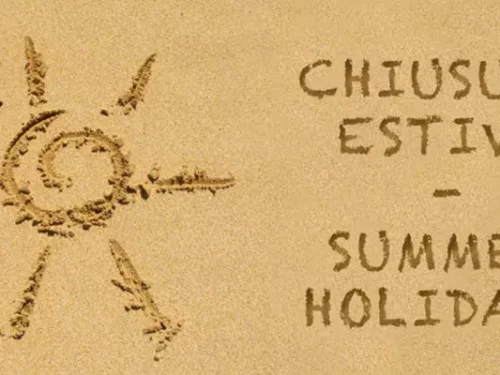 CHIUSU
ESTIV
-
SUMME
HOLIDA